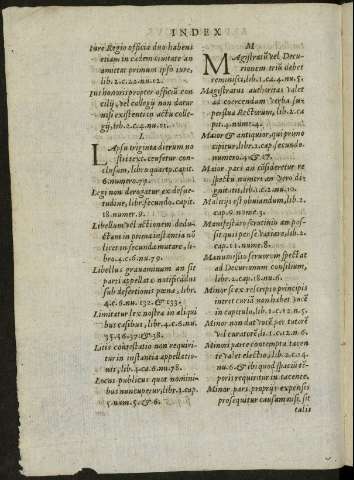 INDEX
Iure Regio officia duo habens
etiam in eadem ciuitate an
amittat primum ipso iure,
lib.2.c.22.nu.12.
Ius honoris propter officiũ con
cilij, vel collegij non datur
nisi existenti in actu colle-
gij, lib.2.c.4.nu.21.
L
LApsu triginta dierum no
stri text. censetur con-
clusum, libro quarto, capit.
6.numero.79.
Legi non derogatur ex desue-
tudine, libr. secundo. capit.
18.numer.9.
Libellum vel actionem dedu-
ctum in prima instantia nõ
licet in secunda mutare, li-
bro.4.c.6.nu.79.
Libellus grauaminum an sit
pars appellatẽ notificãdus
sub desertionis pœna, libr.
4.c.6.nu.132.&.133.
Limitatur lex nostra in aliqui
bus casibus, libr.4.c.6.nu.
35.36.37.&.38.
Litis contestatio non requiri-
tur in instantia appellatio-
nis, lib.4.ca.6.nu.78.
Locus publicus quot nomini-
bus nuncupetur, lib.1.cap.
5.num.5.&.6.
M
MAgistratũ vel Decu-
rionem triũ debet
reminisci, lib.1.ca.4.nu.5.
Magistratus authoritas valet
ad coercendum verba su-
perflua Rectorum, lib.2.ca
pit.4.num.4.
Maior & antiquior, qui primo
cipitur, libr.2.cap.secundo.
numero.4.&.17.
Maior pars an cõsideretur re-
spectu numeri an vero di-
gnitatis, lib.1.c.12.nu.10.
Malitijs est obuiandum, lib.2.
cap.9.nume.3.
Manifestatio scrutinio an pos-
sit quis per se variare, lib.2.
cap.11.nume.8.
Manumissio seruorum spectat
ad Decurionum consilium,
libr.2.cap.18.nu.6.
Minor sex rescripto principis
intret curiã non habet vocẽ
in capitulo, lib.1.c.12.n.5.
Minor non dat vocẽ per tutorẽ
vel curatorẽ, di.1.c.12.n.6.
Minori parte contempta tacen
te valet electio, lib.2.c.4.
nu.6.& ibi quod spaciũ tẽ-
poris requiritur in tacente.
Minor pars proprijs expensis
prosequitur causam nisi, sit
talis